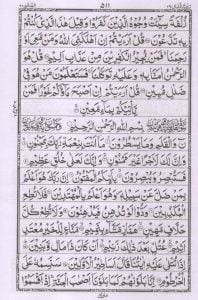 ٥١١
زُلْفَةً سِيْٓـَٔتْ وُجُوْهُ الَّذِيْنَ كَفَرُوْا وَقِيْلَ هٰذَا الَّذِيْ كُنْتُمْ
بِهٖ تَدَّعُوْنَ قُلْ اَرَءَيْتُمْ اِنْ اَهْلَكَنِيَ اللّٰهُ وَمَنْ مَّعِيَ اَوْ
رَحِمَنَا فَمَنْ يُّجِيْرُ الْكٰفِرِيْنَ مِنْ عَذَابٍ اَلِيْمٍ قُلْ هُوَ
الرَّحْمٰنُ اٰمَنَّا بِهٖ وَعَلَيْهِ تَوَكَّلْنَا فَسَتَعْلَمُوْنَ مَنْ هُوَ فِيْ
ضَلٰلٍ مُّبِيْنٍ قُلْ اَرَءَيْتُمْ اِنْ اَصْبَحَ مَآؤُكُمْ غَوْرًا فَمَنْ
يَّاْتِيْكُمْ بِمَآءٍ مَّعِيْنٍ
بِسْمِ اللّٰهِ الرَّحْمٰنِ الرَّحِيْمِ
نٓ وَالْقَلَمِ وَمَا يَسْطُرُوْنَ مَآ اَنْتَ بِنِعْمَةِ رَبِّكَ بِمَجْنُوْنٍ
وَاِنَّ لَكَ لَاَجْرًا غَيْرَ مَمْنُوْنٍ وَاِنَّكَ لَعَلٰى خُلُقٍ عَظِيْمٍ
فَسَتُبْصِرُ وَيُبْصِرُوْنَ بِاَيِّكُمُ الْمَفْتُوْنُ اِنَّ رَبَّكَ هُوَ اَعْلَمُ
بِمَنْ ضَلَّ عَنْ سَبِيْلِهٖ وَهُوَ اَعْلَمُ بِالْمُهْتَدِيْنَ فَلَا تُطِعِ
الْمُكَذِّبِيْنَ وَدُّوْا لَوْ تُدْهِنُ فَيُدْهِنُوْنَ وَلَا تُطِعْ كُلَّ
حَلَّافٍ مَّهِيْنٍ هَمَّازٍ مَّشَّآءٍ بِنَمِيْمٍ مَّنَّاعٍ لِّلْخَيْرِ مُعْتَدٍ
اَثِيْمٍ عُتُلٍّ بَعْدَ ذٰلِكَ زَنِيْمٍ اَنْ كَانَ ذَا مَالٍ وَّبَنِيْنَ
اِذَا تُتْلٰى عَلَيْهِ اٰيٰتُنَا قَالَ اَسَاطِيْرُ الْاَوَّلِيْنَ سَنَسِمُهٗ عَلَى
الْخُرْطُوْمِ اِنَّا بَلَوْنٰهُمْ كَمَا بَلَوْنَآ اَصْحٰبَ الْجَنَّةِ اِذْ اَقْسَمُوْا